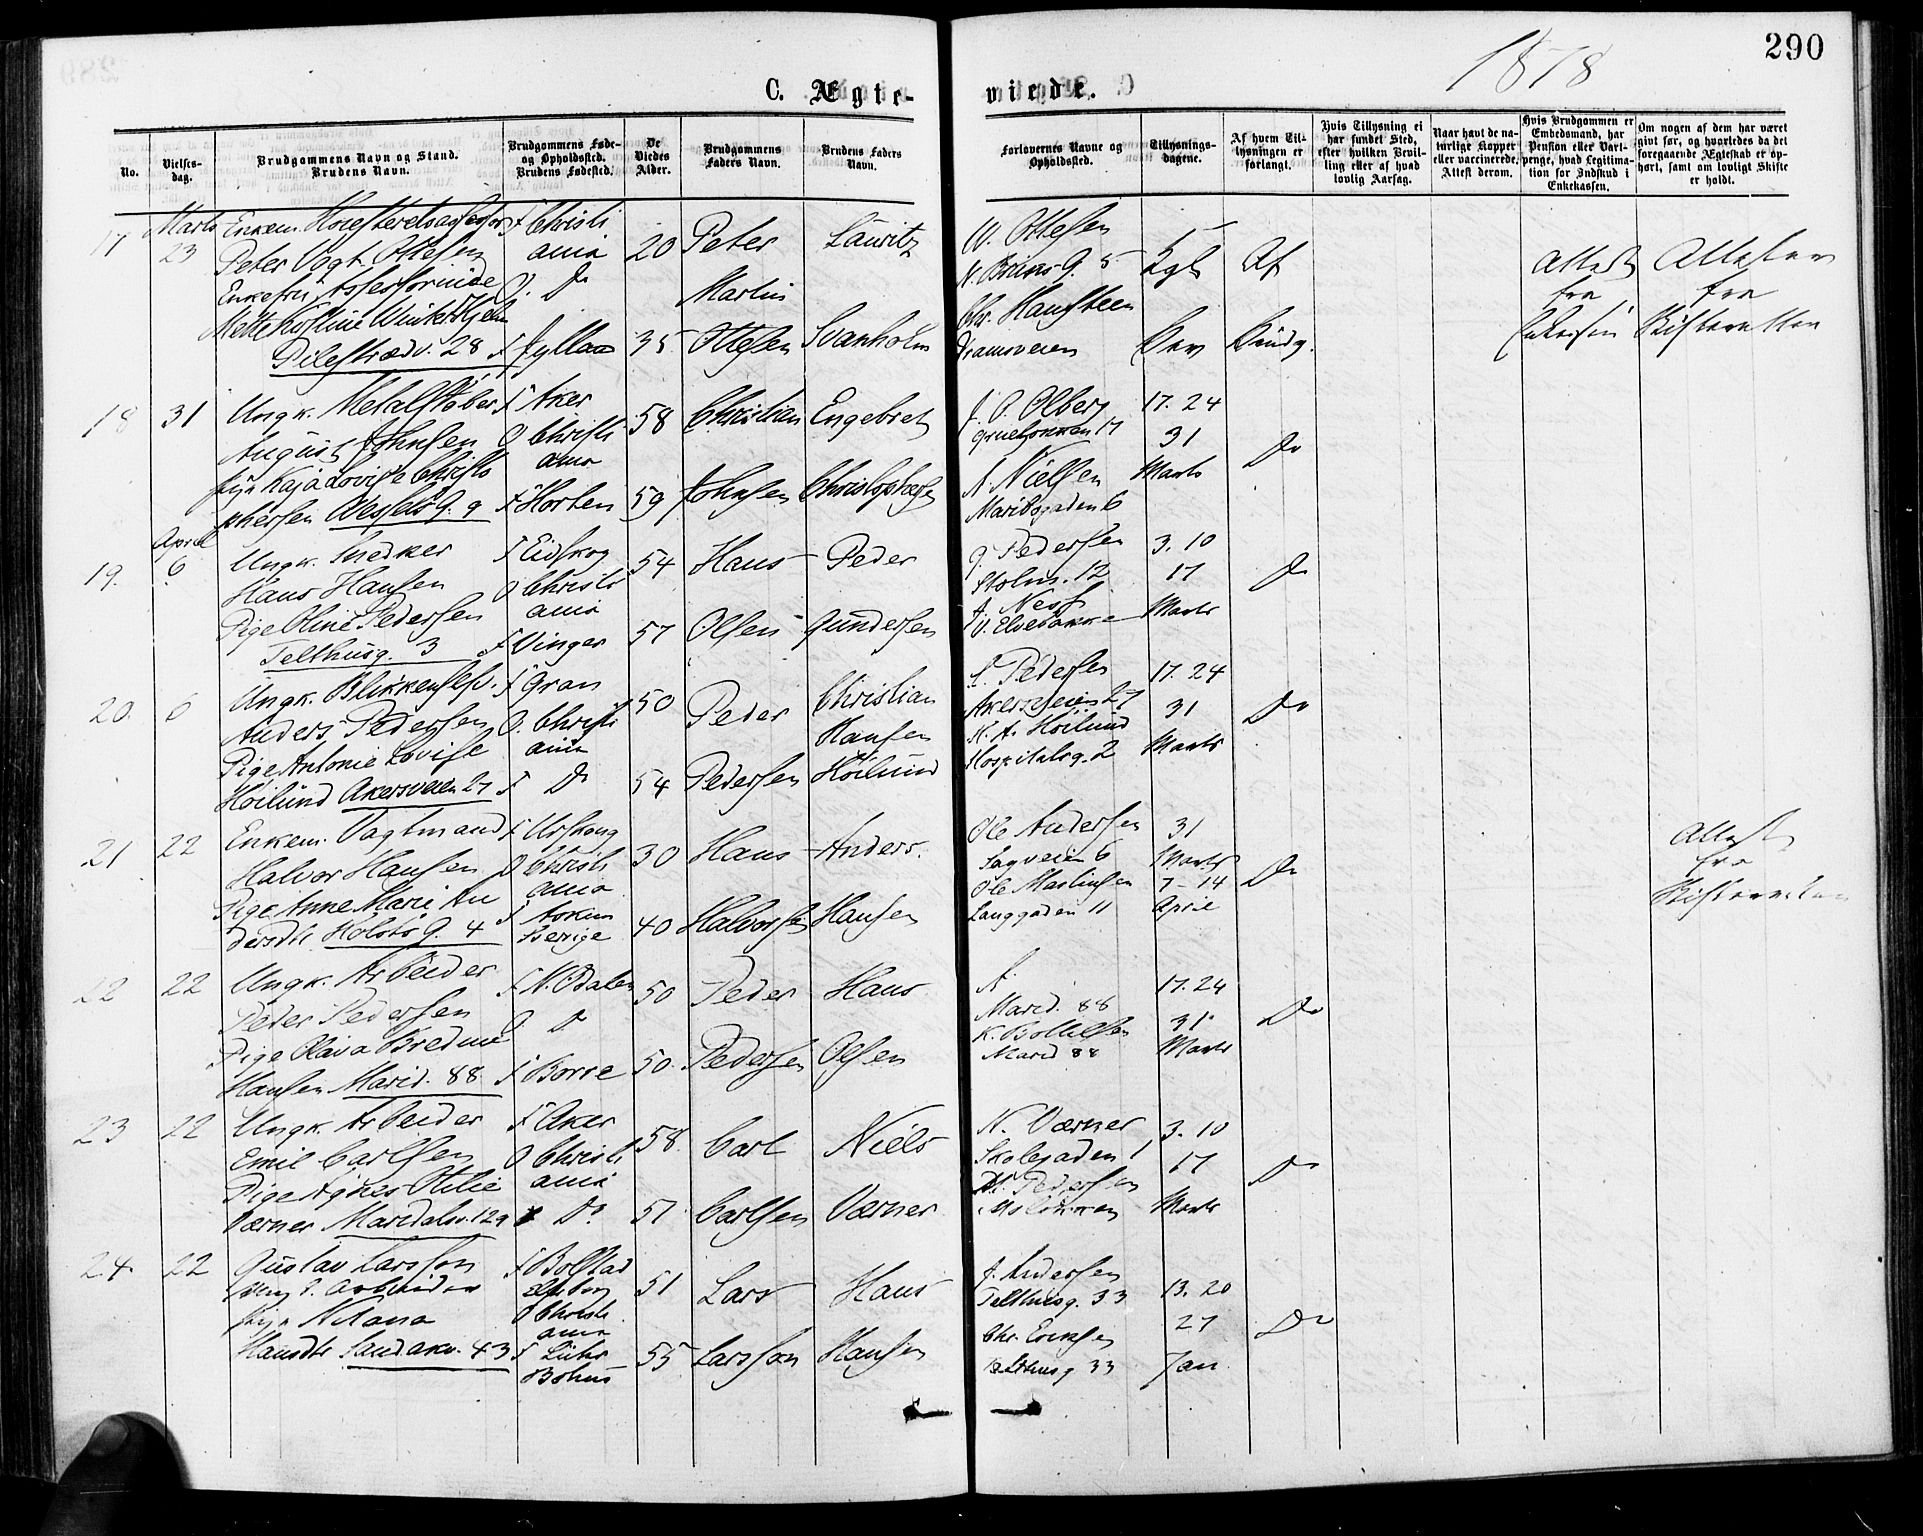 290
1878
C. Ægte-
viede.
No.
Vielses-
dag.
Brudgommens Navn og Stand.
Brudens Navn.
Brudgommens Føde-
og Opholdssted.
Brudens Fødested.
De
Viedes
Alder.
Brudgommens
Faders Navn.
Brudens Faders
Navn.
Forlovernes Navne og
Opholdssted.
Tillysnings-
dagene.
Af hvem Til-
lysningen er
forlangt.
Hvis Tillysning ei
har fundet Sted,
efter hvilken Bevil-
ling eller af hvad
lovlig Aarsag.
Naar havt de na-
turlige Kopper
eller vaccinerede,
Attest derom.
Hvis Brudgommen er
Embedsmand, har
Pension eller Vart-
penge, hvad Legitima-
tion for Indskud i
Enkekassen.
Om nogen af dem har været
givt før, og hvorledes da det
foregaaende Ægteskab er op-
hørt, samt om lovligt Skifte
er holdt.
17 Marts 23
Enkem. Høiesteretsassessor
Peter Vogt Ottesen
Enkefru Assessorinde
Mette
Pilestræd. 28
F Christi
ania
O. Do
F Jylland
20
35
Peter
Martin
Ottesen
Lauritz
Svanholm
W. Ottesen
N. Bruns G. 5
Chr. Hansteen
Af
Brudg.
Attest
fra
Attester
fra
Skifteretten
18 31
Ungk. Metalstøber
August Johnsen
Kaja Lovise Christo
phersen Wessels G. 9
F Aker
O Christi
ania
F Horten
58
59
Christian
Johnsen
Engebret
Christophersen
J. O. Olberg
Grueløkken 17
A. Nielsen
Maribogaden 6
17. 24
31
Marts
Do
19. April 6
Ungk. Snedker
Hans Hansen
Pige Oline Pedersen
Telthusg. 3
F Eidskog
O Christi
ania
F Vinger
54
57
Hans
Olsen
Peder
Gundersen
Pedersen
Holms. 12
A. Ness
V. Elvebakken
3. 10
17
Marts
Do
20. 6
Ungk. Blikkenslg.
Anders Pedersen
Pige Antonie Lovise
Høilund Akersveien 27
F Gran
O. Christi
ania
F Do
50
54
Peder
Pedersen
Christian
Hansen
Høilund
Pedersen
Akersveien 27
K. A. Høilund
Hospitalsg. 2
17. 24
31
Marts
Do
21 22
Enkem. Vagtmand
Halvor Hansen
Pige Anne Marie An
dersdt. Holsts G. 4
F Urskoug
O Christi
ania
F
Sverige
30
40
Hans
Halvorsen
Anders
Hansen
Ole Andersen
Sagveien 6
Ole Martinsen
Langgaden 11
31
Marts
7 - 14
April
Do
Attest
fra
Skifteretten
22 22
Ungk. Arbeider
Peder Pedersen
Pige Olava Bredine
Hansen Marid. 88
F N. Odalen
O Do
F Borre
50
50.
Peder
Pedersen
Hans
Olsen
A.
Marid. 88
K. Bottelsen
Marid 88
17. 24
31
Marts
Do
23 22
Ungk. Arbeider
Emil Carlsen
Pige Agnes Otilie
Værner Maridalsv. 129
F Aker
O Christi
ania
F Do
58
57
Carl
Carlsen
Niels
Værner
N. Værner
Skolegaden 1
Pedersen
3. 10
17
Marts
Do
24. 22
Gustav Larsson
Ung. Arbeider
Pige N Nana
Hansdt. Sandakv. 43
F Bolstad
Elfsborg
O Christi
ania
F
Bohus
51
55
Lars
Larsson
Hans
Hansen
J. Andersen
Telthusg. 33
Chr. Eriksen
Telthusg 33
13. 20
27
Jan.
Do